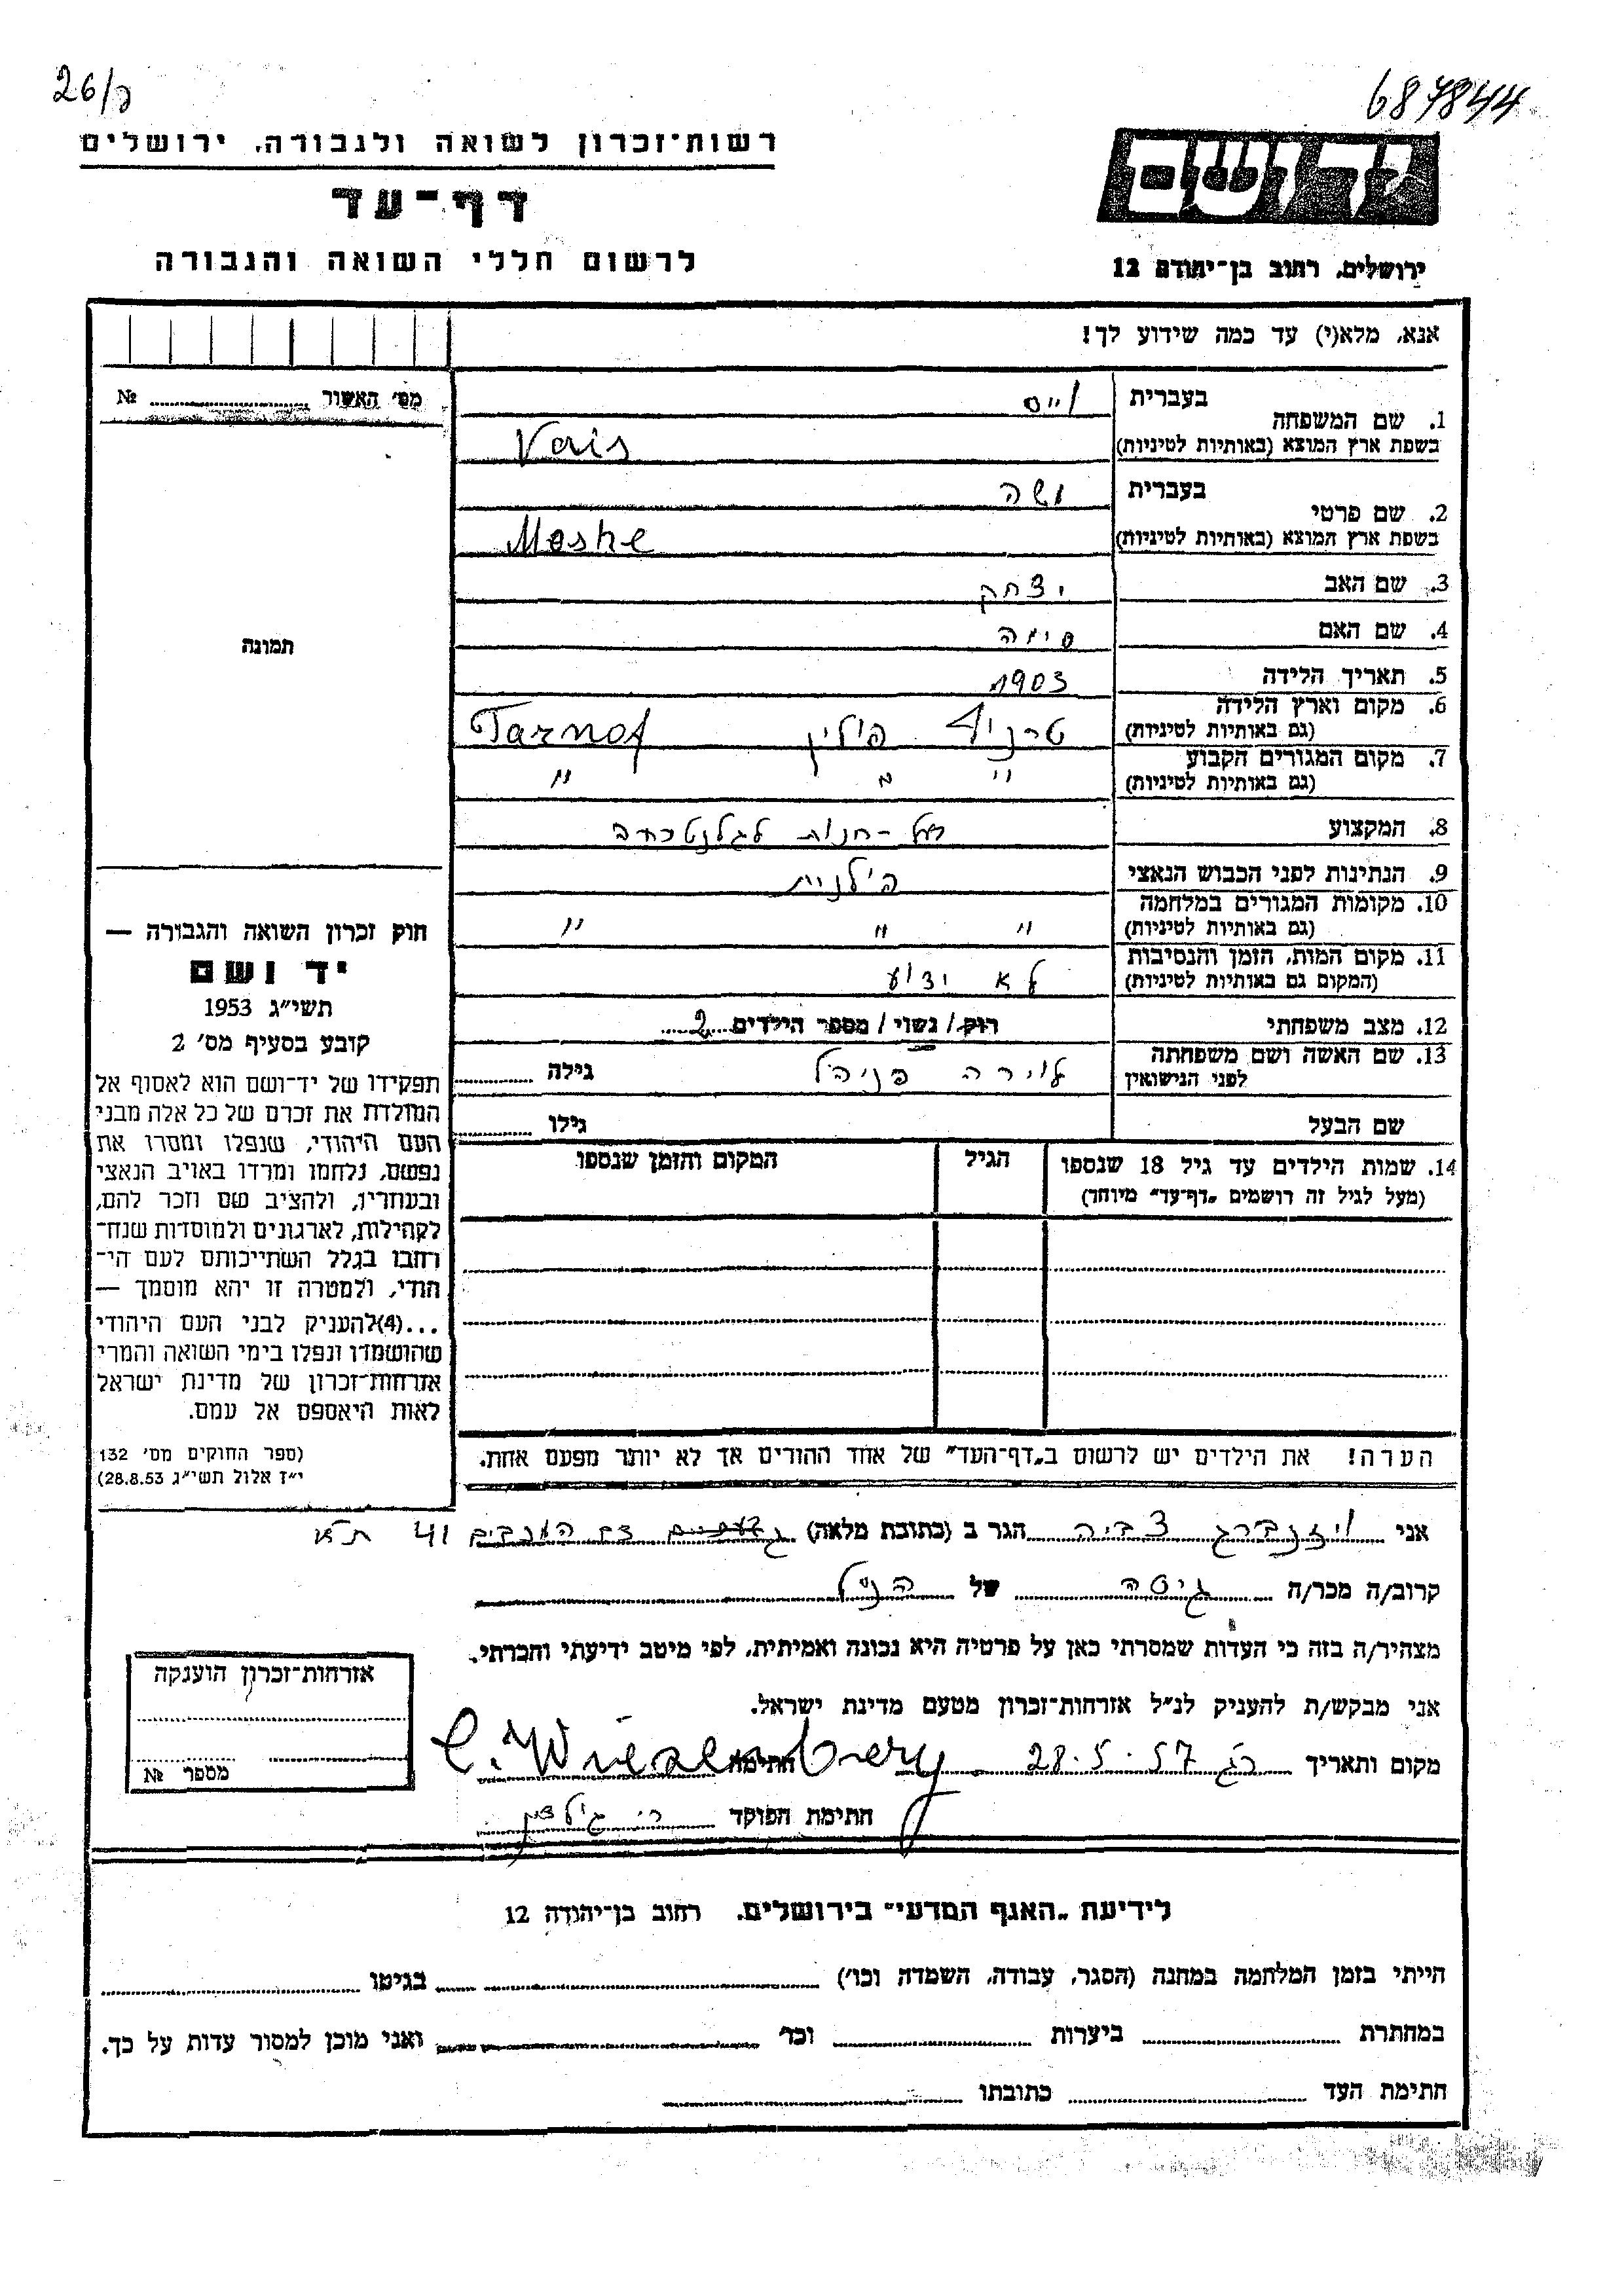 26/ק
687844
רשות־זכרון לשואה ולגבורה, ירושלים
דף־עד
לרשום חללי השואה והגבורה
ידושם
ירושלים, רחוב בן־יהודה 12
אנא, מלא(י) עד כמה שידוע לך!
מס׳ האשור № 
תמונה
חוק זכרון השואה והגבורה —
יד ושם
תשי״ג 1953
קובע בסעיף מס׳ 2
תפקידו של יד־ושם הוא לאסוף אל
המולדת את זכרם של כל אלה מבני
העם היהודי, שנפלו ומסרו את
נפשם, נלחמו ומרדו באויב הנאצי
ובעוזריו, ולהציב שם וזכר להם,
לקהילות, לארגונים ולמוסדות שנח־
רחבו בגלל השתייכותם לעם הי־
הודי, ולמטרה זו יהא מוסמך —
...(4)להעניק לבני העם היהודי
שהושמדו ונפלו בימי השואה והמרי
אזרחות־זכרון של מדינת ישראל
לאות היאספם אל עמם.
(ספר החוקים מס׳ 132
י״ז אלול תשי״ג 28.8.53)
1. שם המשפחה
בעברית וייס
בשפת ארץ המוצא (באותיות לטיניות) Vais
2. שם פרטי
בעברית משה
בשפת ארץ המוצא (באותיות לטיניות) Moshe
3. שם האב יצחק
4. שם האם סימה
5. תאריך הלידה 1903
6. מקום וארץ הלידה
(גם באותיות לטיניות) טרנוף פולין Tarnof
7. מקום המגורים הקבוע
(גם באותיות לטיניות) " " "
8. המקצוע בעל-חנות
9. הנתינות לפני הכבוש הנאצי פולנית
10. מקומות המגורים במלחמה
(גם באותיות לטיניות) " " "
11. מקום המות, הזמן והנסיבות
(המקום גם באותיות לטיניות) לא ידוע
12. מצב משפחתי רוק/ נשוי/ מספר הילדים 2
13. שם האשה ושם משפחתה
לפני הנישואין גילה
שם הבעל גילו
14. שמות הילדים עד גיל 18 שנספו הגיל המקום והזמן שנספו
(מעל לגיל זה רושמים „דף־עד״ מיוחד)
הערה! את הילדים יש לרשום ב„דף־העד״ של אחד ההורים אך לא יותר מפעם אחת.
אני ויזנברג צביה הגר ב (כתובת מלאה) 41 ת״א
קרוב/ה מכר/ה גיסה של הנ״ל
מצהיר/ה בזה כי העדות שמסרתי כאן על פרטיה היא נכונה ואמיתית, לפי מיטב ידיעתי והכרתי.
אני מבקש/ת להעניק לנ״ל אזרחות־זכרון מטעם מדינת ישראל.
מקום ותאריך 28.5.57 חתימה C. Wiesenberg
חתימת הפוקד
אזרחות־זכרון הוענקה
מספר №
לידיעת „האגף המדעי״ בירושלים, רחוב בן־יהודה 12
הייתי בזמן המלחמה במחנה (הסגר, עבודה, השמדה וכו׳) בגיטו
במחתרת ביערות וכו׳ ואני מוכן למסור עדות על כך.
חתימת העד כתובתו